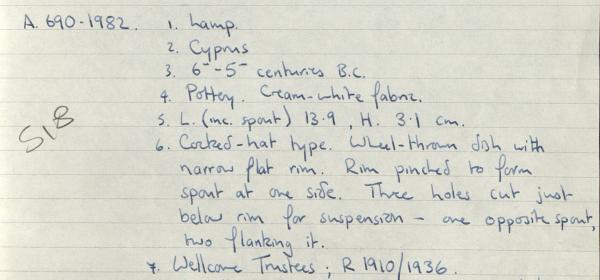 A. 690-1982. 1. Lamp.
2. Cyprus
3. 6--5- centuries B.C.
4. Pottery. Cream-white fabric.
5. L. (inc. spout) 13.9, H. 3.1 cm.
6. Cocked-hat type. Wheel-thrown dish with
narrow flat rim. Rim pinched to form
spout at one side. Three holes cut just
below rim for suspension - one opposite spout,
two flanking it.
7. Wellcome Trustees; R 1910/1936.
S18